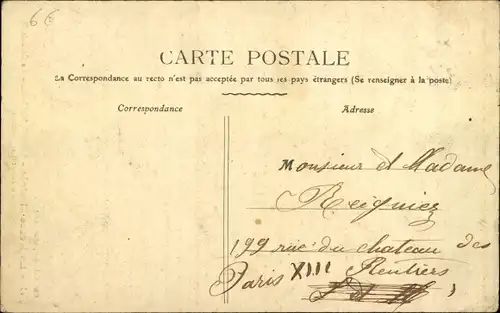 66
CARTE POSTALE
La Correspondance au recto n'est pas acceptée par tous les pays étrangers (Se renseigner à la poste)
Correspondance
Adresse
Monsieur et Madame
Reignier
199 rue du chateau des
Rentiers
Paris XIII